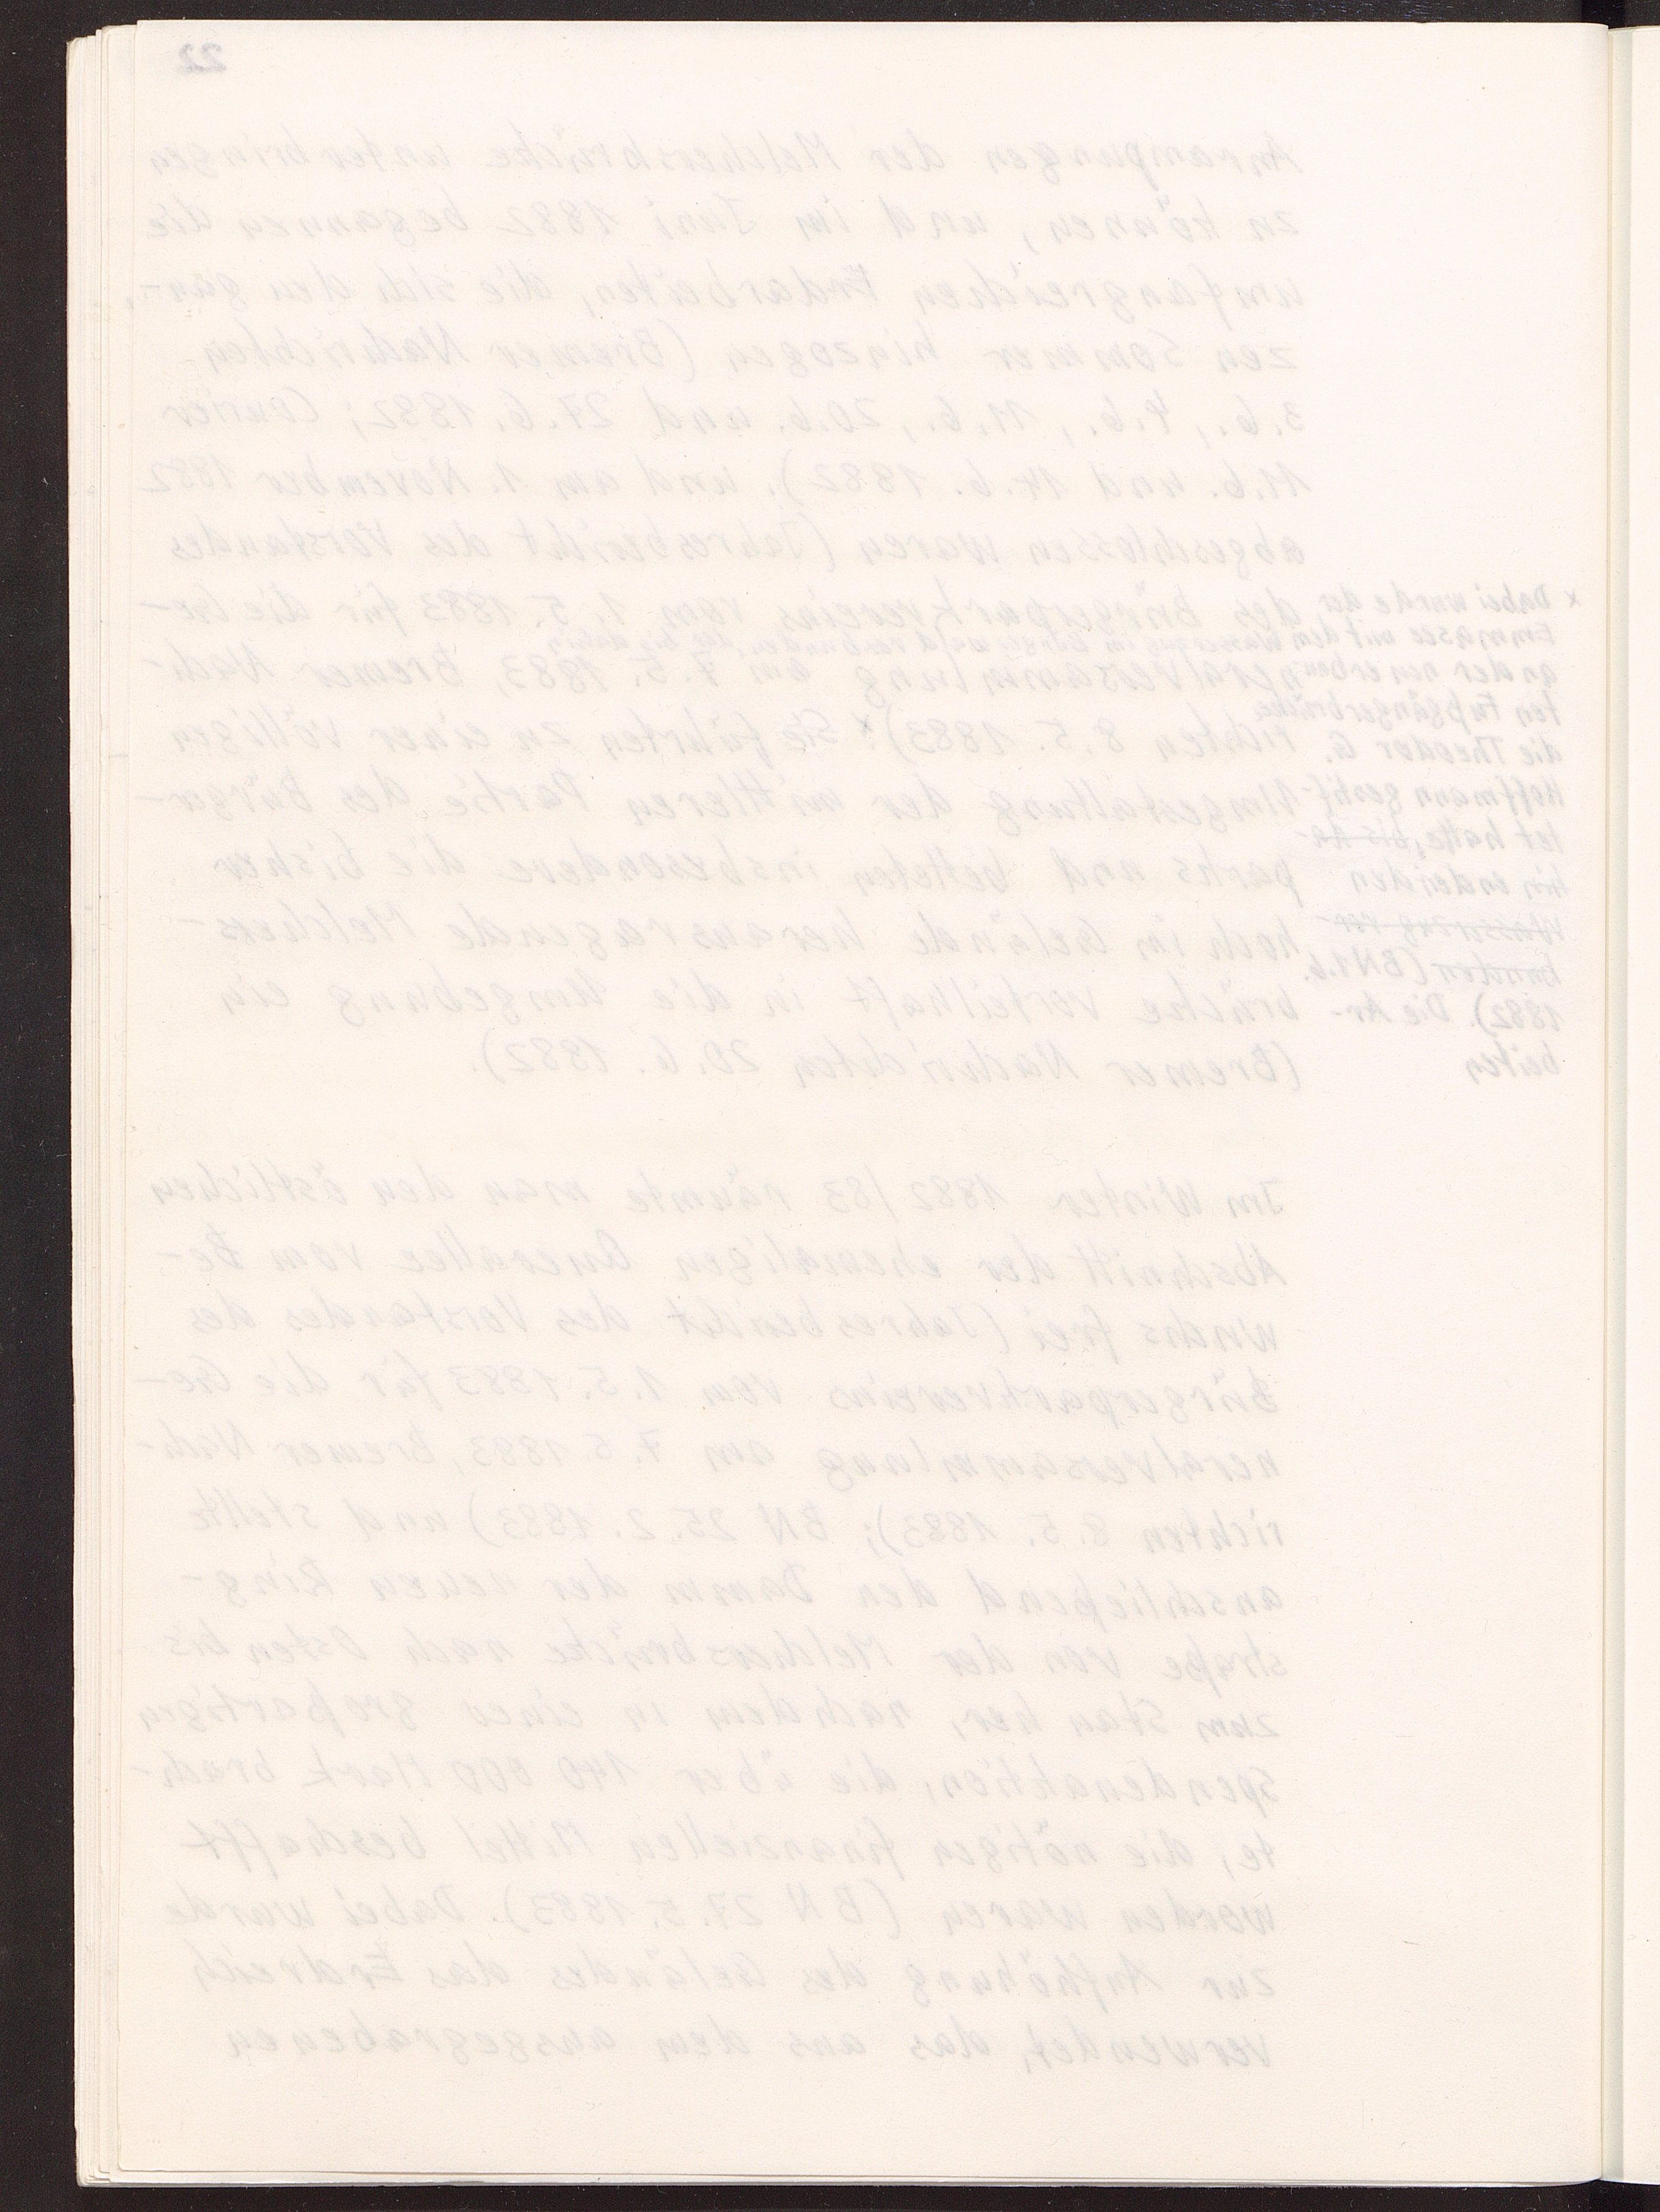 22
Anrampungen der Melchersbrücke unterbringen
zu können, und im Juni 1882 begannen die
umfangreichen Erdarbeiten, die sich den gan-
zen Sommer hinzogen (Bremer Nachrichten
3.6., 4.6., 11.6., 20.6. und 27.6.1882; Courier
11.6. und 14.6.1882), und am 1. November 1882
abgeschlossen waren (Jahresbericht des Vorstandes
des Bürgerparkvereins vom 1.5.1883 für die Ge-
neralversammlung am 7.5.1883, Bremer Nach-
richten 8.5.1883).x Sie führten zu einer völligen
Umgestaltung der mittleren Partie des Bürger-
parks und betteten insbesondere die bisher
hoch im Gelände herausragende Melchers-
brücke vorteilhaft in die Umgebung ein
(Bremer Nachrichten 20.6.1882).
x Dabei wurde der
Emmasee mit dem Wasserzug im Bürgerwald verbunden, der bis dahin
an der neu erbau-
ten Fußgängerbrücke,
die Theodor G.
Hoffmann gestif-
tet hatte, bis da-
hin endenden
Wasserzug ver-
bunden (BN 1.6.
1882). Die Ar-
beiten
Im Winter 1882/83 räumte man den östlichen
Abschnitt der ehemaligen Querallee vom Be-
wuchs frei (Jahresbericht des Vorstandes des
Bürgerparkvereins vom 1.5.1883 für die Ge-
neralversammlung am 7.5.1883, Bremer Nach-
richten 8.5.1883); BN 25.2.1883) und stellte
anschließend den Damm der neuen Ring-
straße von der Melchersbrücke nach Osten bis
zum Stau her, nachdem in einer großartigen
Spendenaktion, die über 140 000 Mark brach-
te, die nötigen finanziellen Mittel beschafft
worden waren (BN 27.5.1883). Dabei wurde
zur Aufhöhung des Geländes das Erdreich
verwendet, das aus dem ausgegrabenen